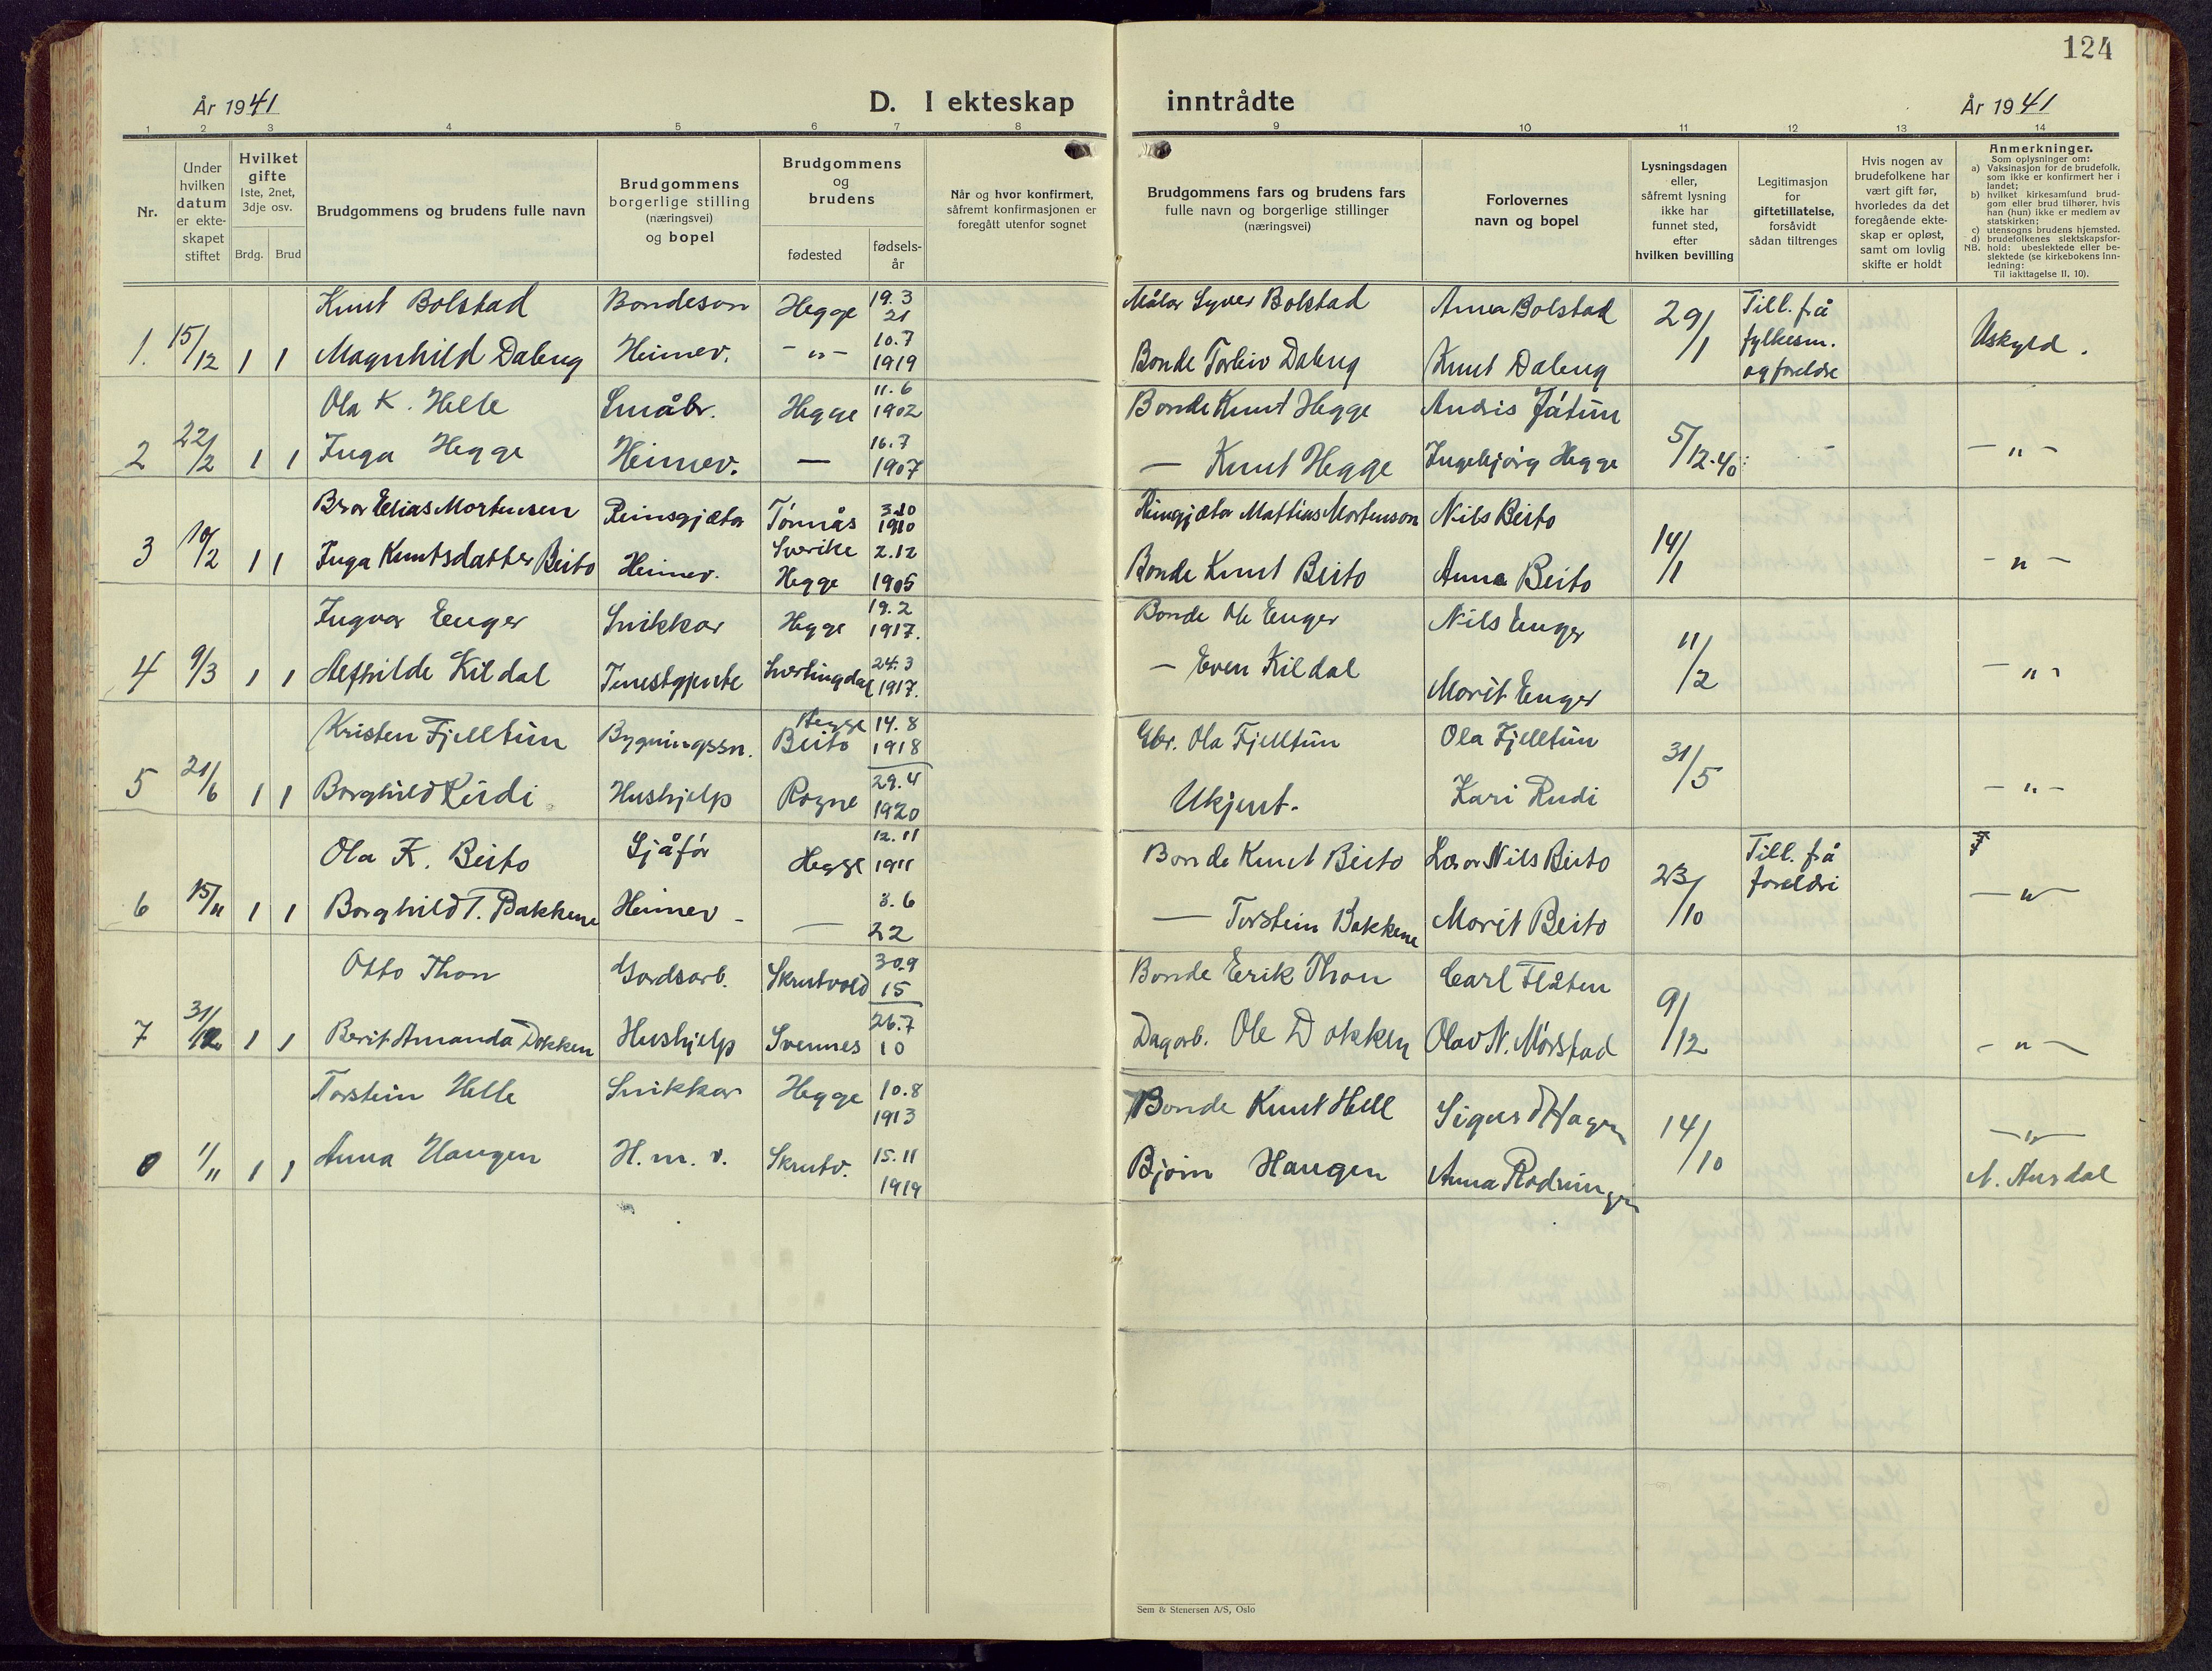 124
År 1941
D. I ekteskap inntrådte
År 1941
1 2 3 4 5 6 7 8 9 10 11 12 13 14
Nr.
Under hvilken datum er ekte-skapet stiftet
Hvilket gifte
1ste, 2net, 3dje osv.
Brdg. Brud
Brudgommens og brudens fulle navn
Brudgommens borgerlige stilling (næringsvei) og bopel
Brudgommens og brudens
fødested
fødsels-år
Når og hvor konfirmert, såfremt konfirmasjonen er foregått utenfor sognet
Brudgommens fars og brudens fars fulle navn og borgerlige stillinger (næringsvei)
Forlovernes navn og bopel
Lysningsdagen eller, såfremt lysning ikke har funnet sted, efter hvilken bevilling
Legitimasjon for giftetillatelse, forsåvidt sådan tiltrenges
Hvis nogen av brudefolkene har vært gift før, hvorledes da det foregående ekte-skap er opløst, samt om lovlig skifte er holdt
Anmerkninger.
Som oplysninger om:
a) Vaksinasjon for de brudefolk, som ikke er konfirmert her i landet;
b) hvilket kirkesamfund brud-gom eller brud tilhører, hvis han (hun) ikke er medlem av statskirken;
c) utensogns brudens hjemsted.
d) brudefolkenes slektskapsfor-hold: ubeslektede eller be-slektede (se kirkebokens inn-ledning:
NB. Til iakttagelse II, 10).
Knut Bolstad Bondeson Hegge 19.3 21 Målar Syver Bolstad Anna Bolstad 29/1 Till. frå fylkesm. og foreldre Uskyld.
1. 15/12 1 1 Magnhild Daleng Heimev. -"- 10.7 1919 Bonde Torleiv Daleng Knut Daleng
Ola K. Helle Småbr. Hegge 11.6 1902 Bonde Knut Hegge Andris Játun
2 22/2 1 1 Inga Hegge Heimev. — 16.7 1907 — Knut Hegge Ingebjörg Hegge 5/12-40 - -"-
Bror Elias Mortensen Reinsgjætar Tönnäs Sverike 1910 Mattias Mortenson Nils Beito
3 10/2 1 1 Inga Knutsdatter Beito Heimev. Hegge 2.12 1905 Bonde Knut Beito Anna Beito 14/1 -"-
Ingvar Enger Snikkar Hegge 19.2 1917. Bonde Ole Enger Nils Enger
4 9/3 1 1 Alfhilde Kildal Tenestgjente 24.3 1917. — Even Kildal Marit Enger 11/2 -"-
Kristen Fjelltun Bygningssn. Hegge Beito 14.8 1918 Gbr. Ola Fjelltun Ola Fjelltun
5 21/6 1 1 Borghild Rudi Hushjelp Rogne 29.4 1920 Ukjent. Kari Rudi 31/5 -"-
Ola K. Beito Sjåför Hegge 12.11 1911 Bonde Knut Beito Lærar Nils Beito Till. frå foreldri
6 15/11 1 1 Borghild T. Bakkene Heimev - — 3.6 22 — Torstein Bakkene Marit Beito 23/10 -"-
Otto Thon Gardsarb. Skrutvold 30.9 15 Bonde Erik Thon Carl Flåten
7 31/12 1 1 Berit Amanda Dokken Hushjelp Svennes 26.7 10 Dagarb. Ole Dokken Olav N. Mörstad 9/12 -"-
Torstein Helle Snikkar Hegge 10.8 1913 Bonde Knut Hell Sigurd Hagen
1/11 1 1 Anna Haugen H.m.v. Skrutv. 15.11 1919 Björn Haugen Anna Rodningen 14/10 -"- N. Aurdal
Sem & Stenersen A/S, Oslo